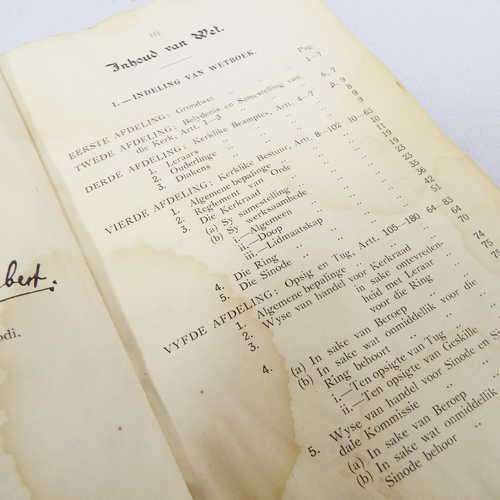 Inhoud van Wet.
I.—INDELING VAN WETBOEK.
Pag.
EERSTE AFDELING: Grondwet 1-7
TWEDE AFDELING: Belydenis en Samestelling van
die Kerk, Artt. 1-3 6, 7
DERDE AFDELING: Kerklike Beamptes, Artt. 4-7
1. Leraars
2. Ouderlinge
3. Diakens
VIERDE AFDELING: Kerklike Bestuur, Artt. 8-102 10-63
1. Algemene bepalinge
2. Reglement van Orde
3. Die Kerkraad
(a) Sy samestelling
(b) Sy werksaamhede
i.—Algemeen
ii.—Doop
iii.—Lidmaatskap
4. Die Ring 42
5. Die Sinode 51
VYFDE AFDELING: Opsig en Tug, Artt. 105-180 64-83
1. Algemene bepalinge 64
2. Wyse van handel voor Kerkraad 70
3. " " in sake ontevreden-
heid met Leraar 74
voor die Ring 75
4. (a) In sake van Beroep
(b) In sake wat onmiddelik voor die
Ring behoort
i.—Ten opsigte van Tug
ii.—Ten opsigte van Geskille
5. Wyse van handel voor Sinode en S
dale Kommissie
(a) In sake van Beroep
(b) In sake wat onmiddelik
Sinode behoor
bert.
odi.